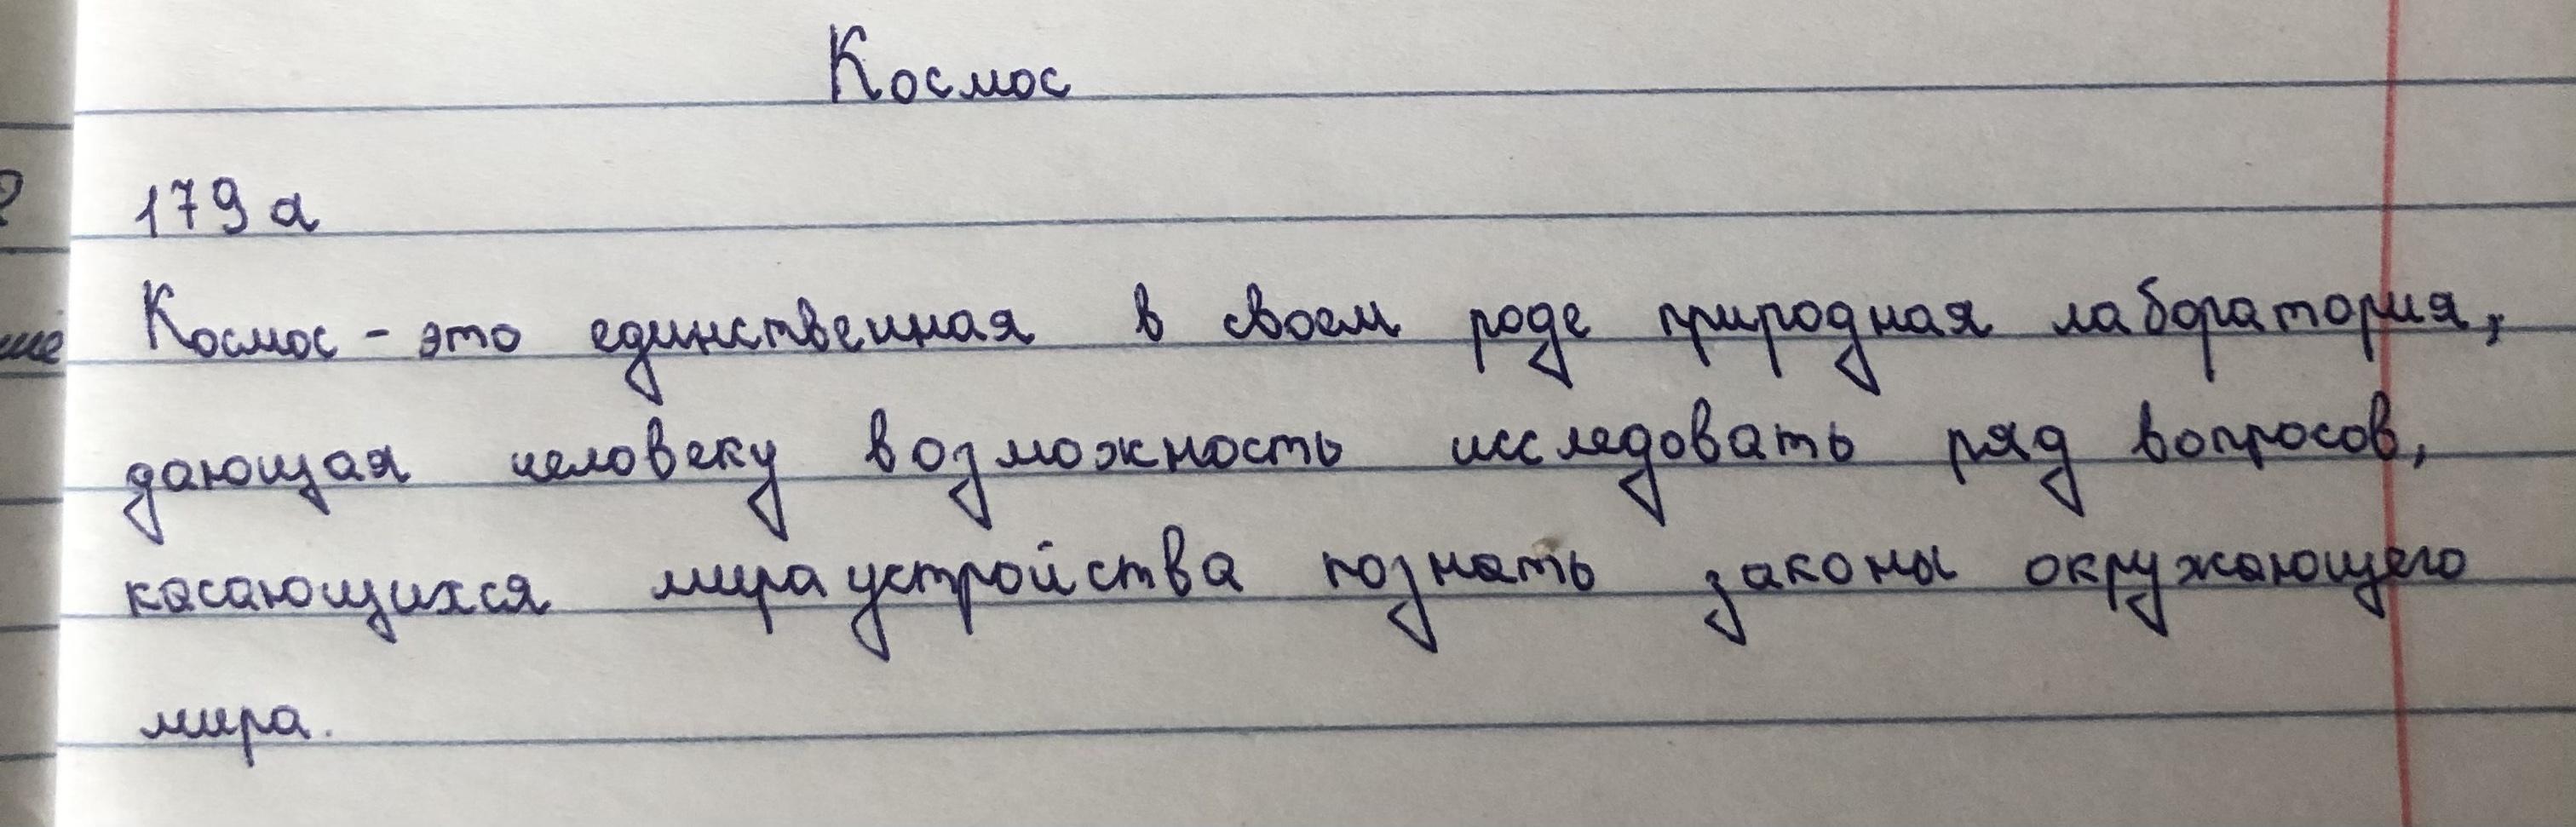 Космос
179а
Космос - это единственная в своем роде природная лаборатория,
дающая человеку возможность исследовать ряд вопросов,
касающихся мираустройства познать законы окружающего
мира.